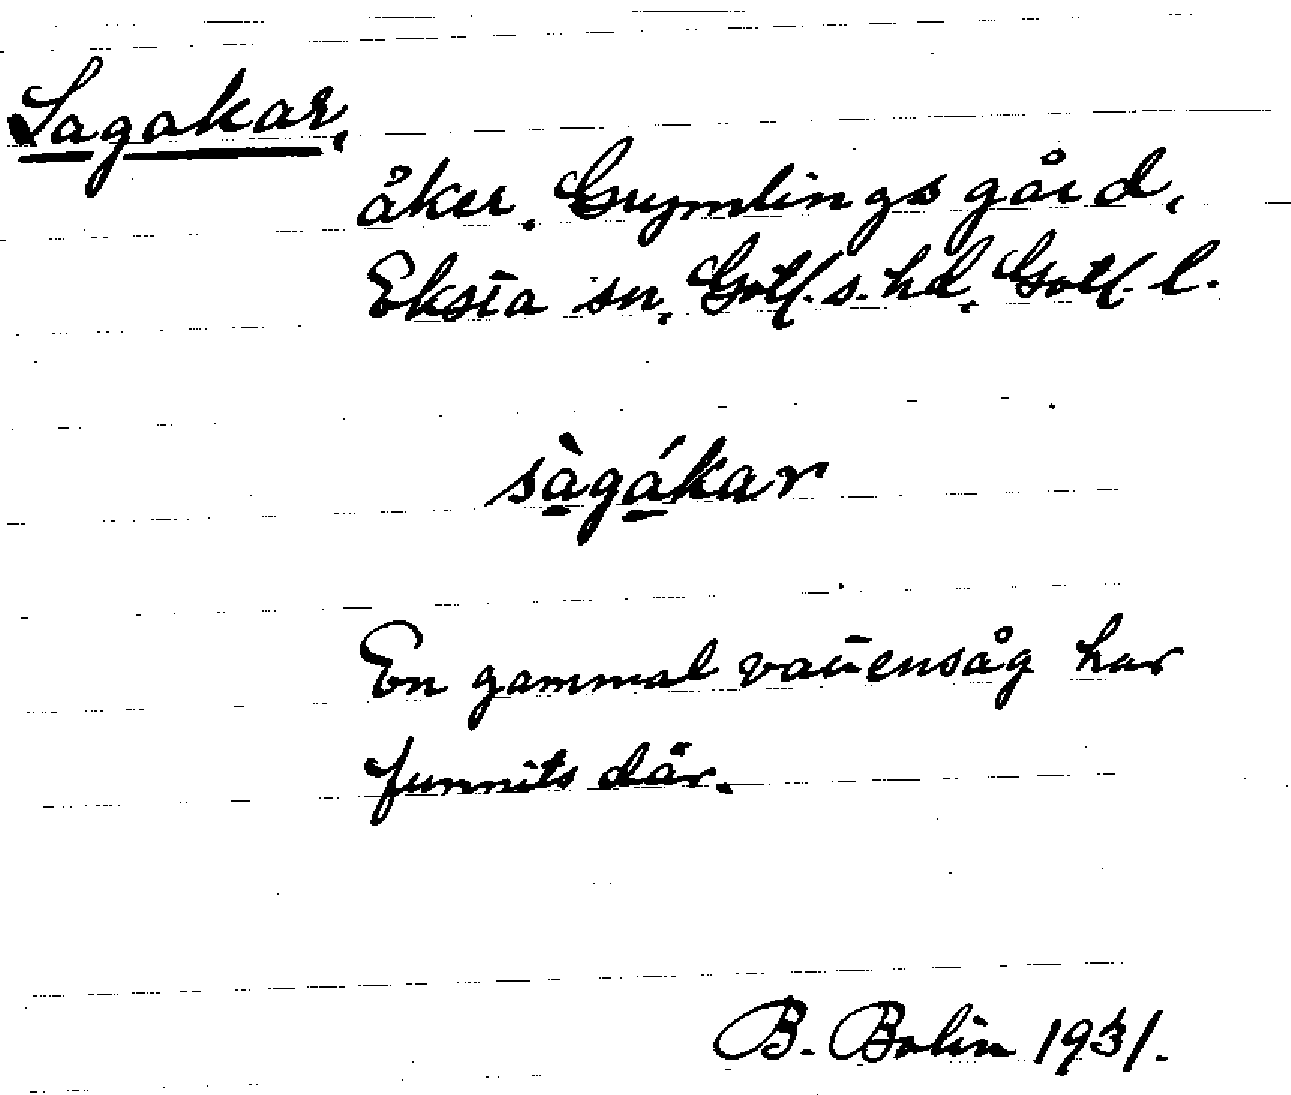 Sagakar,
åker. Grymlings gård,
Eksta sn. Gotl. s. hd. Gotl. l.
sàgákar
En gammal vattensåg har
funnits där.
B. Bolin 1931.